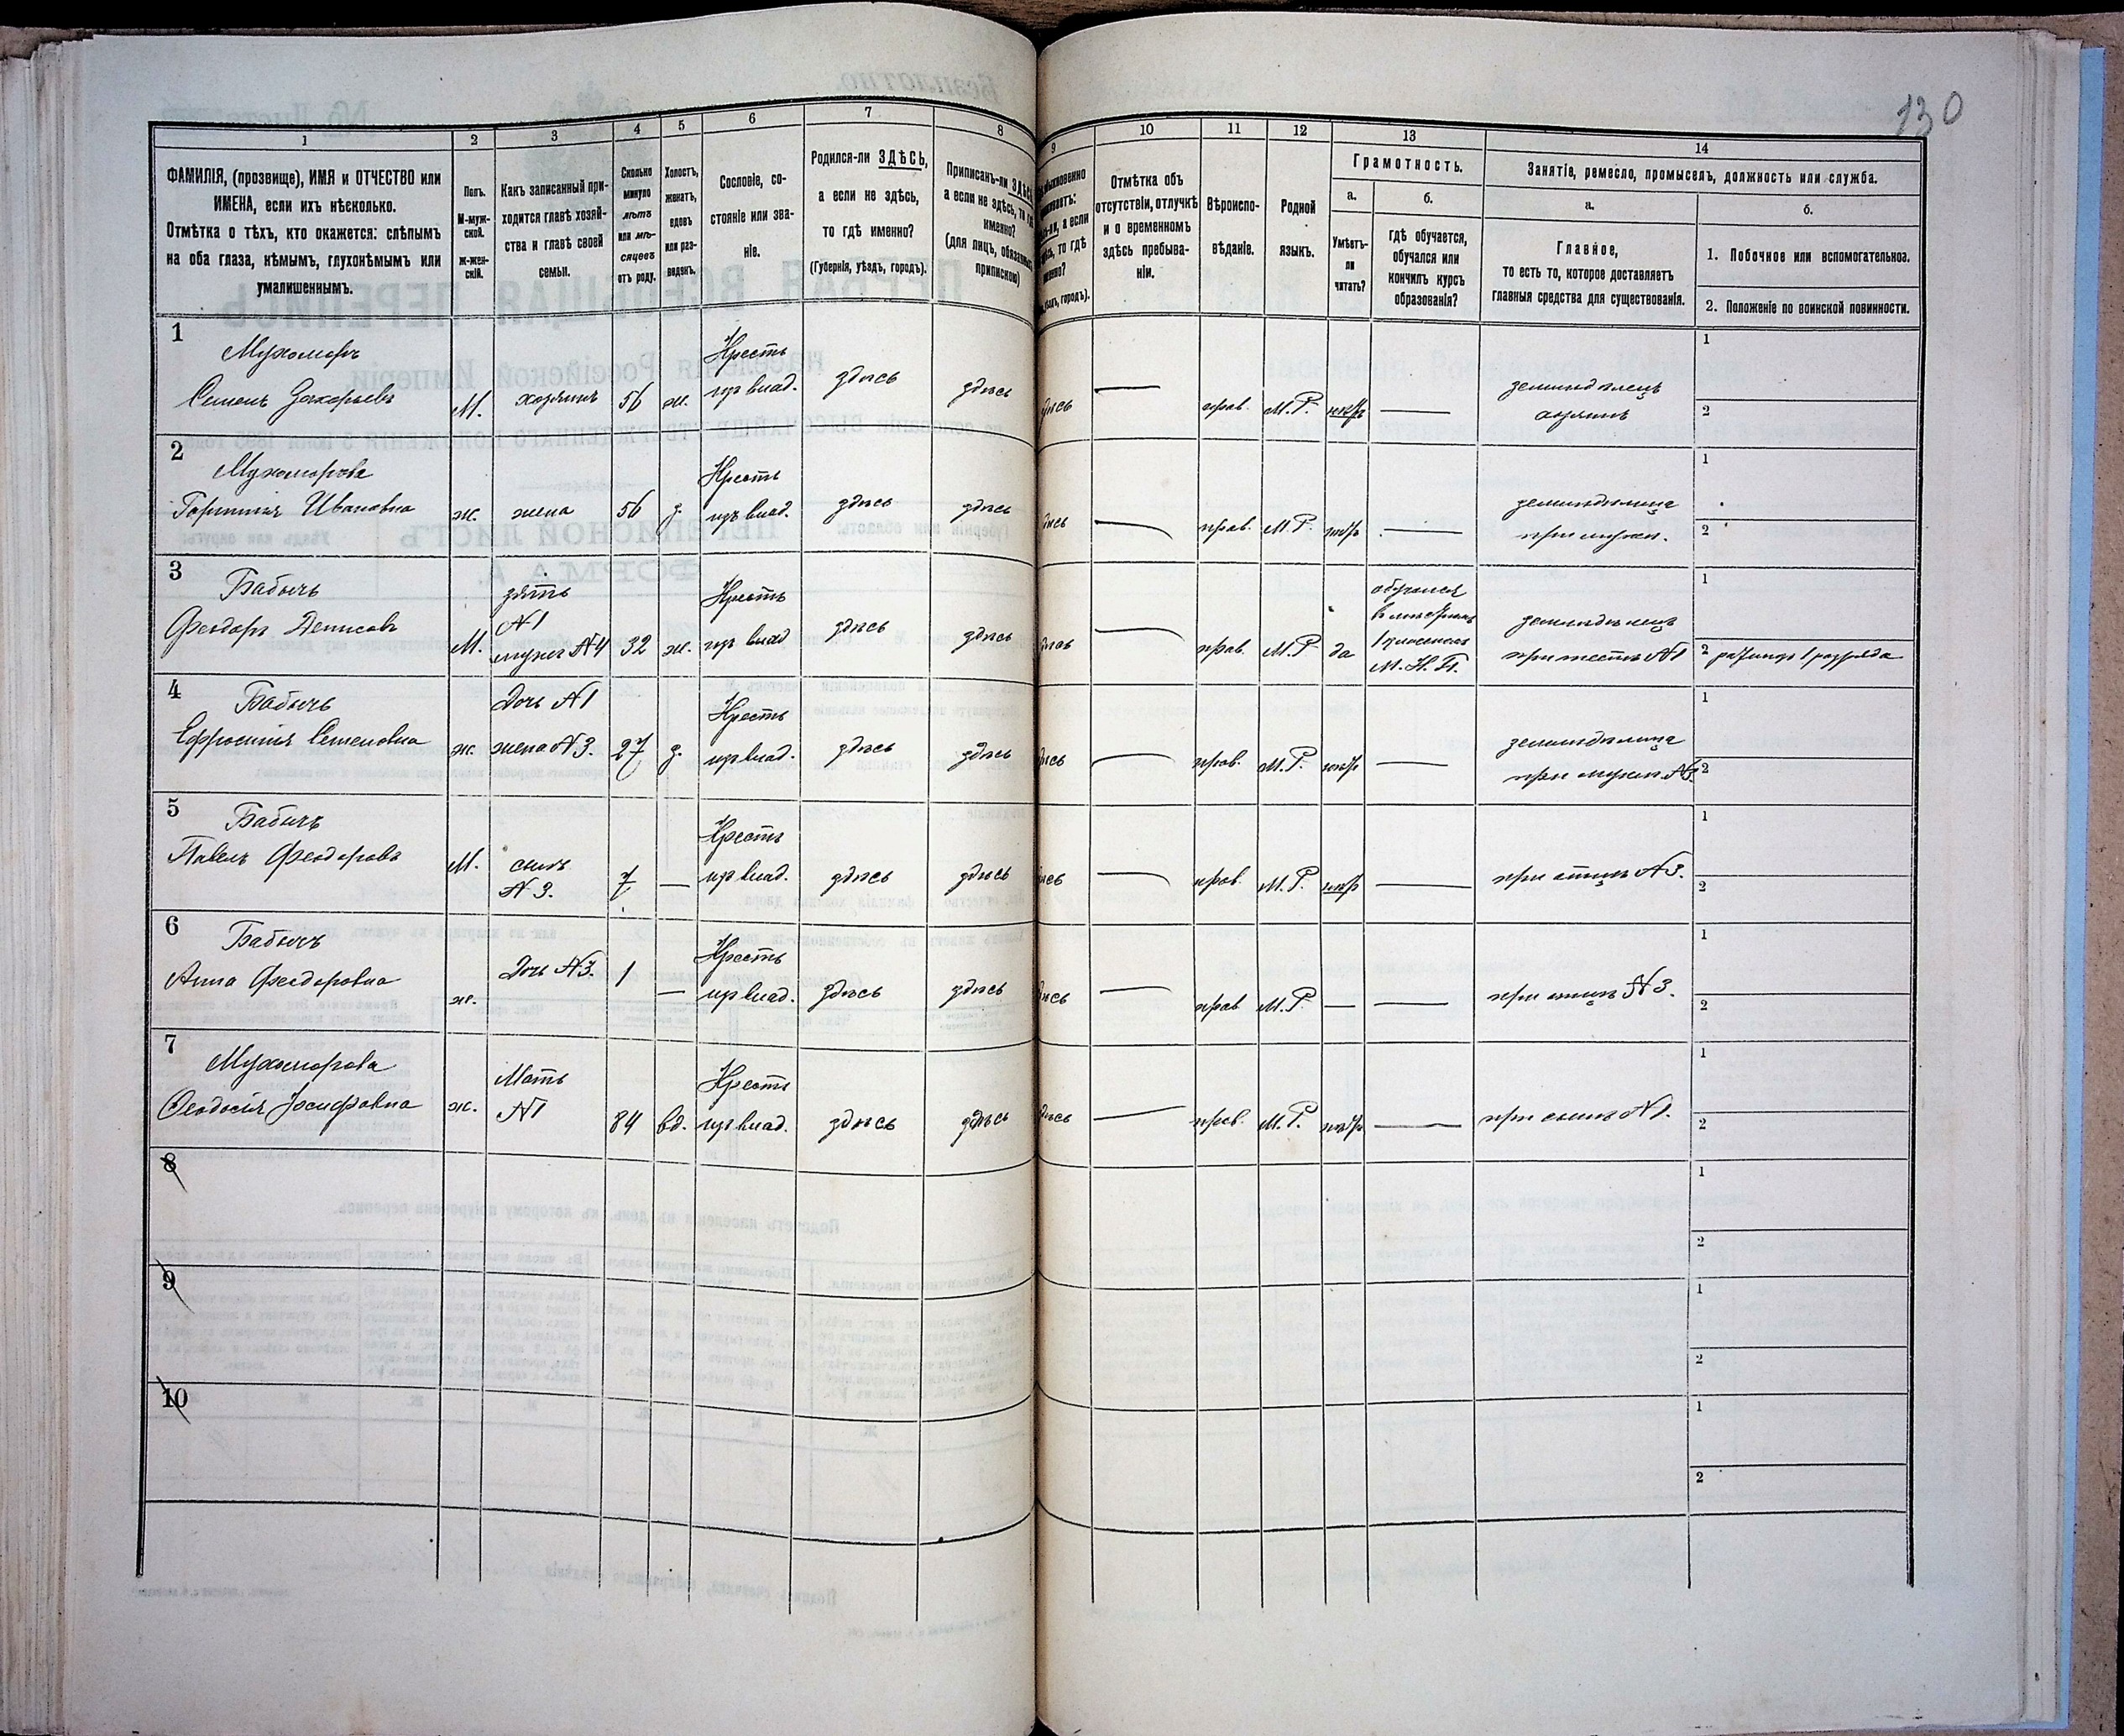 130
1
2
3
4
5
6
7
8
9
10
11
12
13
14
ФАМИЛІЯ, (прозвище), ИМЯ и ОТЧЕСТВО или
ИМЕНА, если ихъ нѣсколько.
Отмѣтка о тѣхъ, кто окажется: слѣпымъ
на оба глаза, нѣмымъ, глухонѣмымъ или
умалишеннымъ.
Полъ.
М-муж-
ской.
ж-жен-
скій.
Какъ записанный при-
ходится главѣ хозяй-
ства и главѣ своей
семьи.
Сколько
минуло
лѣтъ
или мѣ-
сяцевъ
отъ роду.
Холостъ,
женатъ,
вдовъ
или раз-
веденъ.
Сословіе, со-
стояніе или зва-
ніе.
Родился-ли ЗДѢСЬ,
а если не здѣсь,
то гдѣ именно?
(Губернія, уѣздъ, городъ).
Приписанъ-ли ЗДѢСЬ
а если не здѣсь, то гдѣ
именно?
(для лицъ, обязанныхъ
припискою)
а если
то гдѣ
городъ).
Отмѣтка объ
отсутствіи, отлучкѣ
и о временномъ
здѣсь пребыва-
ніи.
Вѣроиспо-
вѣданіе.
Родной
языкъ.
Грамотность.
а.
б.
Умѣетъ-
ли
читать?
гдѣ обучается,
обучался или
кончилъ курсъ
образованія?
Занятіе, ремесло, промыселъ, должность или служба.
а.
б.
Главное,
то есть то, которое доставляетъ
главныя средства для существованія.
1. Побочное или вспомогательное.
2. Положеніе по воинской повинности.
1
Мухоморъ
Семенъ Захарьевъ
М.
хозяинъ
56
ж.
Крестъ
изъ влад.
здѣсь
здѣсь
—
прав.
М.Р.
—
земледѣлецъ
хозяинъ
1
2
2
Мухоморова
Горпина Ивановна
ж.
жена
56
з.
Крестъ
изъ влад.
здѣсь
здѣсь
—
прав.
М.Р.
—
земледѣлица
при мужѣ.
1
2
3
Бабичъ
Феодоръ Денисовъ
М.
зять
№1
мужъ №4
32
ж.
Крестъ
изъ влад
здѣсь
здѣсь
—
прав.
М.Р
да
обучался
М. Н. П.
земледѣлецъ
при тестѣ №1
1
2 ратникъ 1 разряда
4
Бабичъ
Ефросинія Семеновна
ж.
Дочь №1
жена №3.
27
з.
Крестъ
изъ влад.
здѣсь
здѣсь
—
прав.
М.Р.
—
земледѣлица
при мужѣ №3
1
2
5
Бабичъ
Павелъ Феодоровъ
М.
сынъ
№ 3.
7
—
Крестъ
изъ влад.
здѣсь
здѣсь
—
прав.
М.Р.
—
при отцѣ №3.
1
2
6
Бабичъ
Анна Феодоровна
ж.
Дочь №3.
1
—
Крестъ
изъ влад.
здѣсь
здѣсь
—
прав
М.Р.
—
—
при отцѣ №3.
1
2
7
Мухоморова
Феодосія Іосифовна
ж.
Мать
№1
84
вд.
Крестъ
изъ влад.
здѣсь
здѣсь
—
прав.
М.Р.
—
при сынѣ №1.
1
2
8
1
2
9
1
2
10
1
2